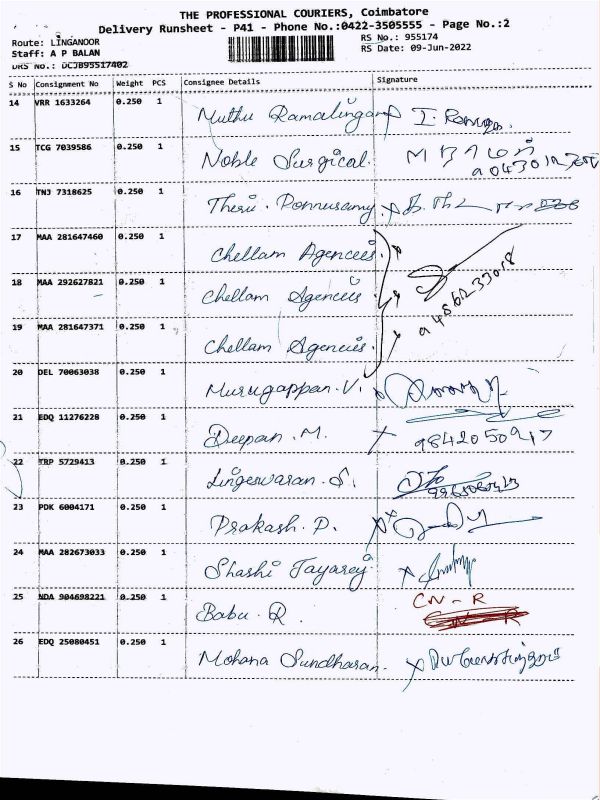 THE PROFESSIONAL COURIERS, Coimbatore
Delivery Runsheet - P41 - Phone No.:0422-3505555 - Page No.:2
Route: LINGANOOR RS No.: 955174
Staff: A P BALAN RS Date: 09-Jun-2022
DRS No.: DCJB95517402
S No Consignment No Weight PCS Consignee Details Signature
14 VRR 1633264 0.250 1 Muthu Ramalingam
15 TCG 7039586 0.250 1 Noble Surgical.
16 TNJ 7318625 0.250 1 Ponnusamy
17 MAA 281647460 0.250 1 Chellam Agencies.
18 MAA 292627821 0.250 1 Chellam Agencies
19 MAA 281647371 0.250 1 Chellam Agencies.
20 DEL 70063038 0.250 1 Murugappan. V.
21 EDQ 11276228 0.250 1 Deepan. M.
22 TRP 5729413 0.250 1 Lingeswaran. S.
23 PDK 6004171 0.250 1 Prakash. P.
24 MAA 282673033 0.250 1 Shashi
25 NDA 904698221 0.250 1 Babu. R. CN-R
26 EDQ 25080451 0.250 1 Mohana Sundharan.